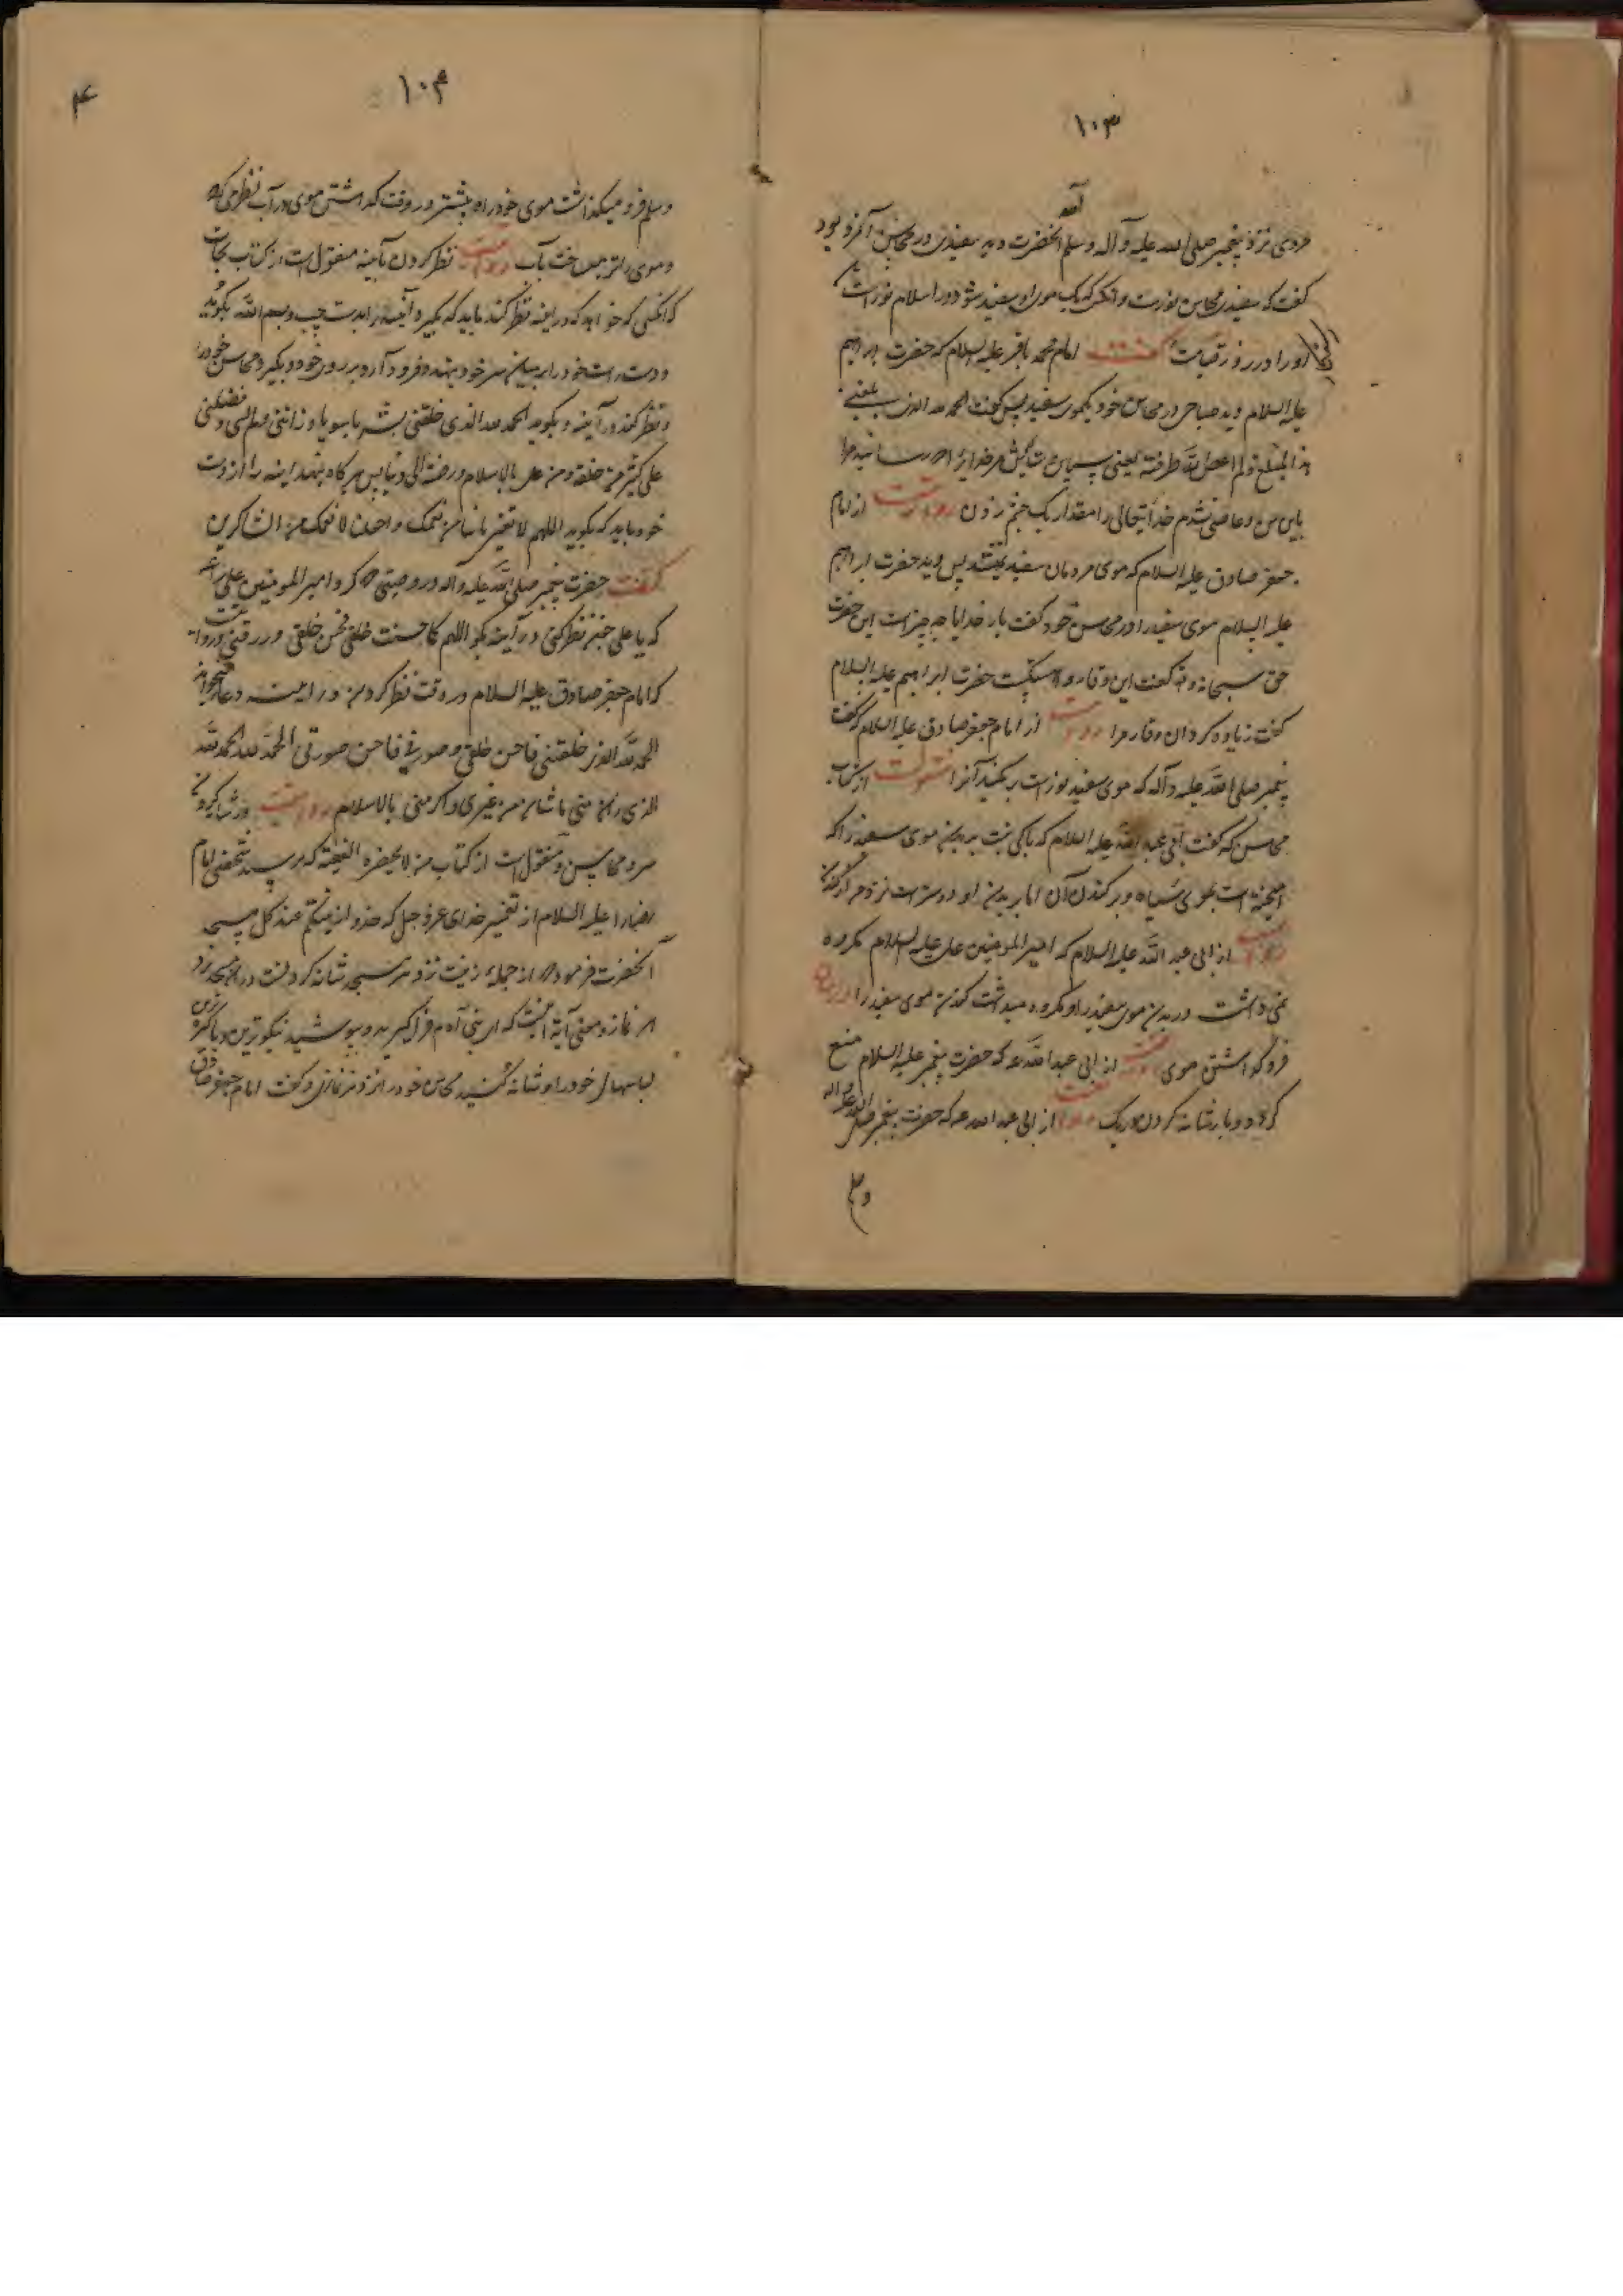 ۱۰۳
آمد
مردی نزد پیغمبر صلی الله علیه و آله وسلم آنحضرت دید سفیدی در محاسن آنمرد بود
گفت که سفیدی محاسن نورست و آنکس که یک موی او سفید شود در اسلام نوراست
او را در روز قیامت گفت امام محمد باقر علیه السلام که حضرت ابراهیم
علیه السلام دید صباحی در محاسن خود یکموی سفید پس گفت الحمد لله الذی بلغنی
هذا المبلغ ولم اعص الله طرفة یعنی سپاس و ستایش مر خدایرا که رسانید مرا
باین سن و عاصی نشدم خدایتعالی را مقدار یک چشم زدن روایتست از امام
جعفر صادق علیه السلام که موی مردمان سفید نمیشد پس دید حضرت ابراهیم
علیه السلام موی سفید را در محاسن خود گفت بار خدایا چه چیز است این حضرت
حق سبحانه و تعالی گفت این وقار و حضرت ابراهیم علیه السلام
گفت زیاده گردان وقار مرا روایتست از امام جعفر صادق علیه السلام که گفت
پیغمبر صلی الله علیه و آله که موی سفید نور است برمکنید آنرا منقولست از کتاب
محاسن که گفت ابی عبد الله علیه السلام که باکی نیست بریدن موی سفید را که
آمیخته است بموی سیاه و برکندن آن اما بریدن او دوستر است نزد من از کندن
روایتست از ابی عبد الله علیه السلام که امیر المومنین علی علیه السلام مکروه
نمی داشت در بریدن موی سفید را و مکروه میداشت کندن موی سفید را در بیان
فروگذاشتن موی روایتست از ابی عبد الله عه که حضرت پیغمبر علیه السلام منع
کرد دو بار شانه کردن در یک روایتست از ابی عبد الله عه که حضرت پیغمبر صلی الله علیه و اله
وسلم
۱۰۴
۴
وسلم فرو میگذاشت موی خود را و بیشتر در وقت گذاشتن موی در آب نظر می کرد
و موی را تر میساخت بآب روایتست نظر کردن بآینه منقول است از کتاب نجات
که آنکسی که خواهد که در آینه نظر کند باید که بگیرد آینه را بدست چپ و بسم الله بگوید
و دست راست خود را بر میان سر خود بنهد و فرود آرد بر روی خود و بگیرد محاسن خود را
و نظر کند در آینه و بگوید الحمد لله الذی خلقنی بشرا سویا و زاننی ولم یشنی و فضلنی
علی کثیر من خلقه ومن علی بالاسلام ورضیه لی دینا پس هرگاه بنهد آینه را از دست
خود باید که بگوید اللهم لا تغیر ما بنا من نعمک واجعلنا لانعمک من الشاکرین
گفت حضرت پیغمبر صلی الله علیه و آله در وصیتی که کرد امیر المومنین علی را
که یا علی چون نظر کنی در آینه بگو اللهم کما حسنت خلقی فحسن خلقی ورزقی و روایتست
که امام جعفر صادق علیه السلام در وقت نظر کردن در آینه این دعا میخواند
الحمد لله الذی خلقنی فاحسن خلقی وصورنی فاحسن صورتی الحمد لله الحمد لله
الذی زان منی ما شان من غیری واکرمنی بالاسلام روایتست در شانه کردن
سر و محاسن و منقول است از کتاب من لا یحضره الفقیه که پرسید شخصی امام
رضا را علیه السلام از تفسیر خدای عز و جل که خذوا زینتکم عند کل مسجد
آنحضرت فرمود که از جمله زینت نزد هر مسجد شانه کردنست در هر مسجد نزد
هر نماز و معنی آیة اینست که ای بنی آدم فرا گیرید و بپوشید نیکو ترین و پاکیزه ترین
لباسهای خود را و شانه کنید محاسن خود را نزد هر نمازی و گفت امام جعفر صادق